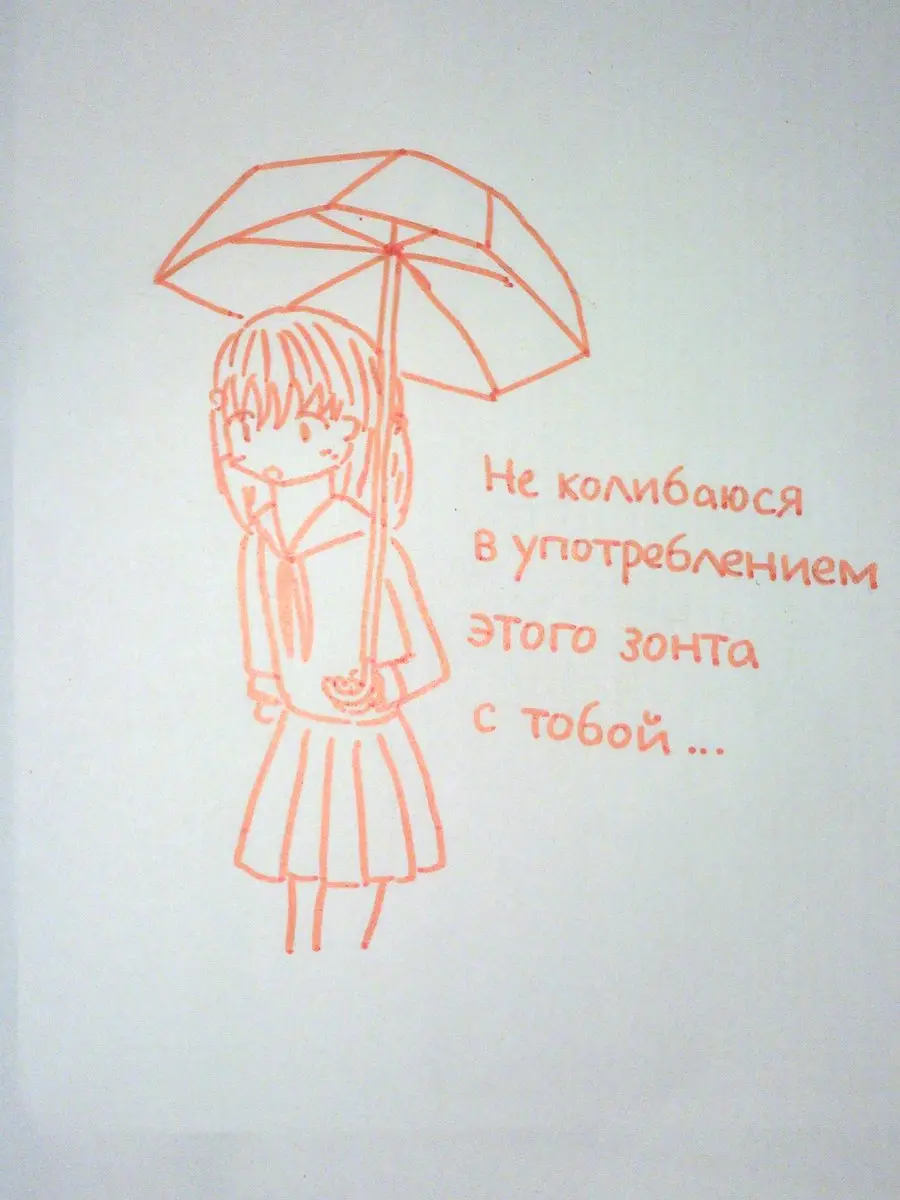 Не колибаюся
в употреблением
этого зонта
с тобой...